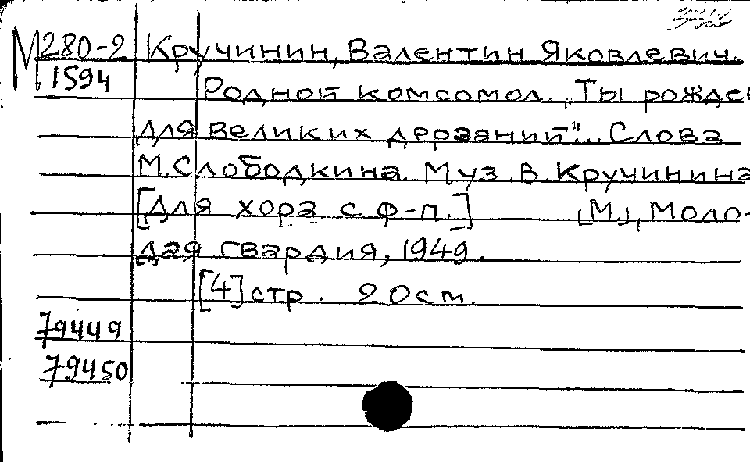 М 280-2 Кручинин, Валентин Яковлевич.
1594 Родной комсомол. „Ты рожден
для великих дерзаний"... Слова
М. Слободкина. Муз. В. Кручинина
[Для хора с ф-п.] [М], Моло-
дая гвардия, 1949.
[4] стр. 20 см.
79449
79450